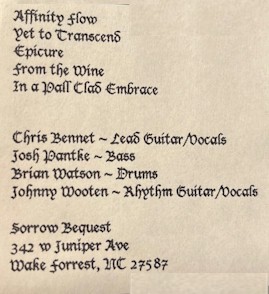 Affinity Flow
Yet to Transcend
Epicure
From the Wine
In a Pall Clad Embrace
Chris Bennet ~ Lead Guitar/Vocals
Josh Pantke ~ Bass
Brian Watson ~ Drums
Johnny Wooten ~ Rhythm Guitar/Vocals
Sorrow Bequest
342 W Juniper Ave
Wake Forrest, NC 27587